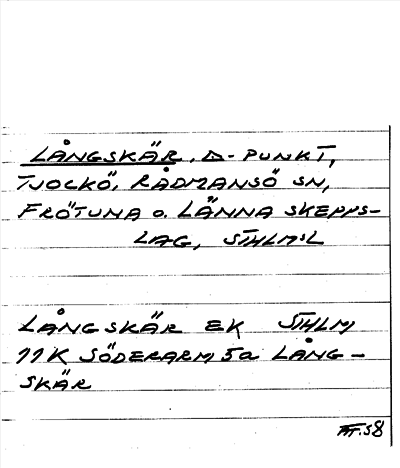 LÅNGSKÄR, Δ-PUNKT,
TJOCKÖ, RÅDMANSÖ SN,
FRÖTUNA o. LÄNNA SKEPPS-
LAG, STHLM:L
LÅNGSKÄR EK STHLM
11K SÖDERARM 5a LÅNG-
SKÄR